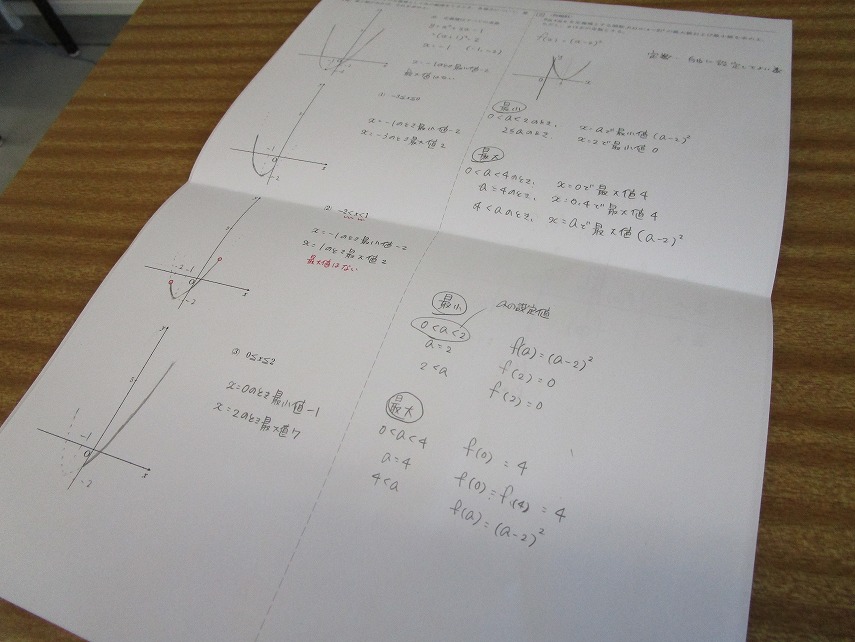 y=x²+2x-1
=(x+1)²-2
x=-1 (-1,-2)
x=-1のとき最小値-2
最大値はない
① -3≦x≦0
x=-1のとき最小値-2
x=-3のとき最大値2
② -3<x<1
x=-1のとき最小値-2
x=1のとき最大値2
最大値はない
③ 0≦x≦2
x=0のとき最小値-1
x=2のとき最大値7
f(x)=(x-2)²
定数…自由に設定してよい数
最小
0<a<2のとき、 x=aで最小値(a-2)²
2≦aのとき、 x=2で最小値0
最大
0<a<4のとき、 x=0で最大値4
a=4のとき、 x=0,4で最大値4
4<aのとき、 x=aで最大値(a-2)²
最小
aの設定値
0<a<2 f(a)=(a-2)²
a=2 f(2)=0
2<a f(2)=0
最大
0<a<4 f(0)=4
a=4 f(0)=f(4)=4
4<a f(a)=(a-2)²